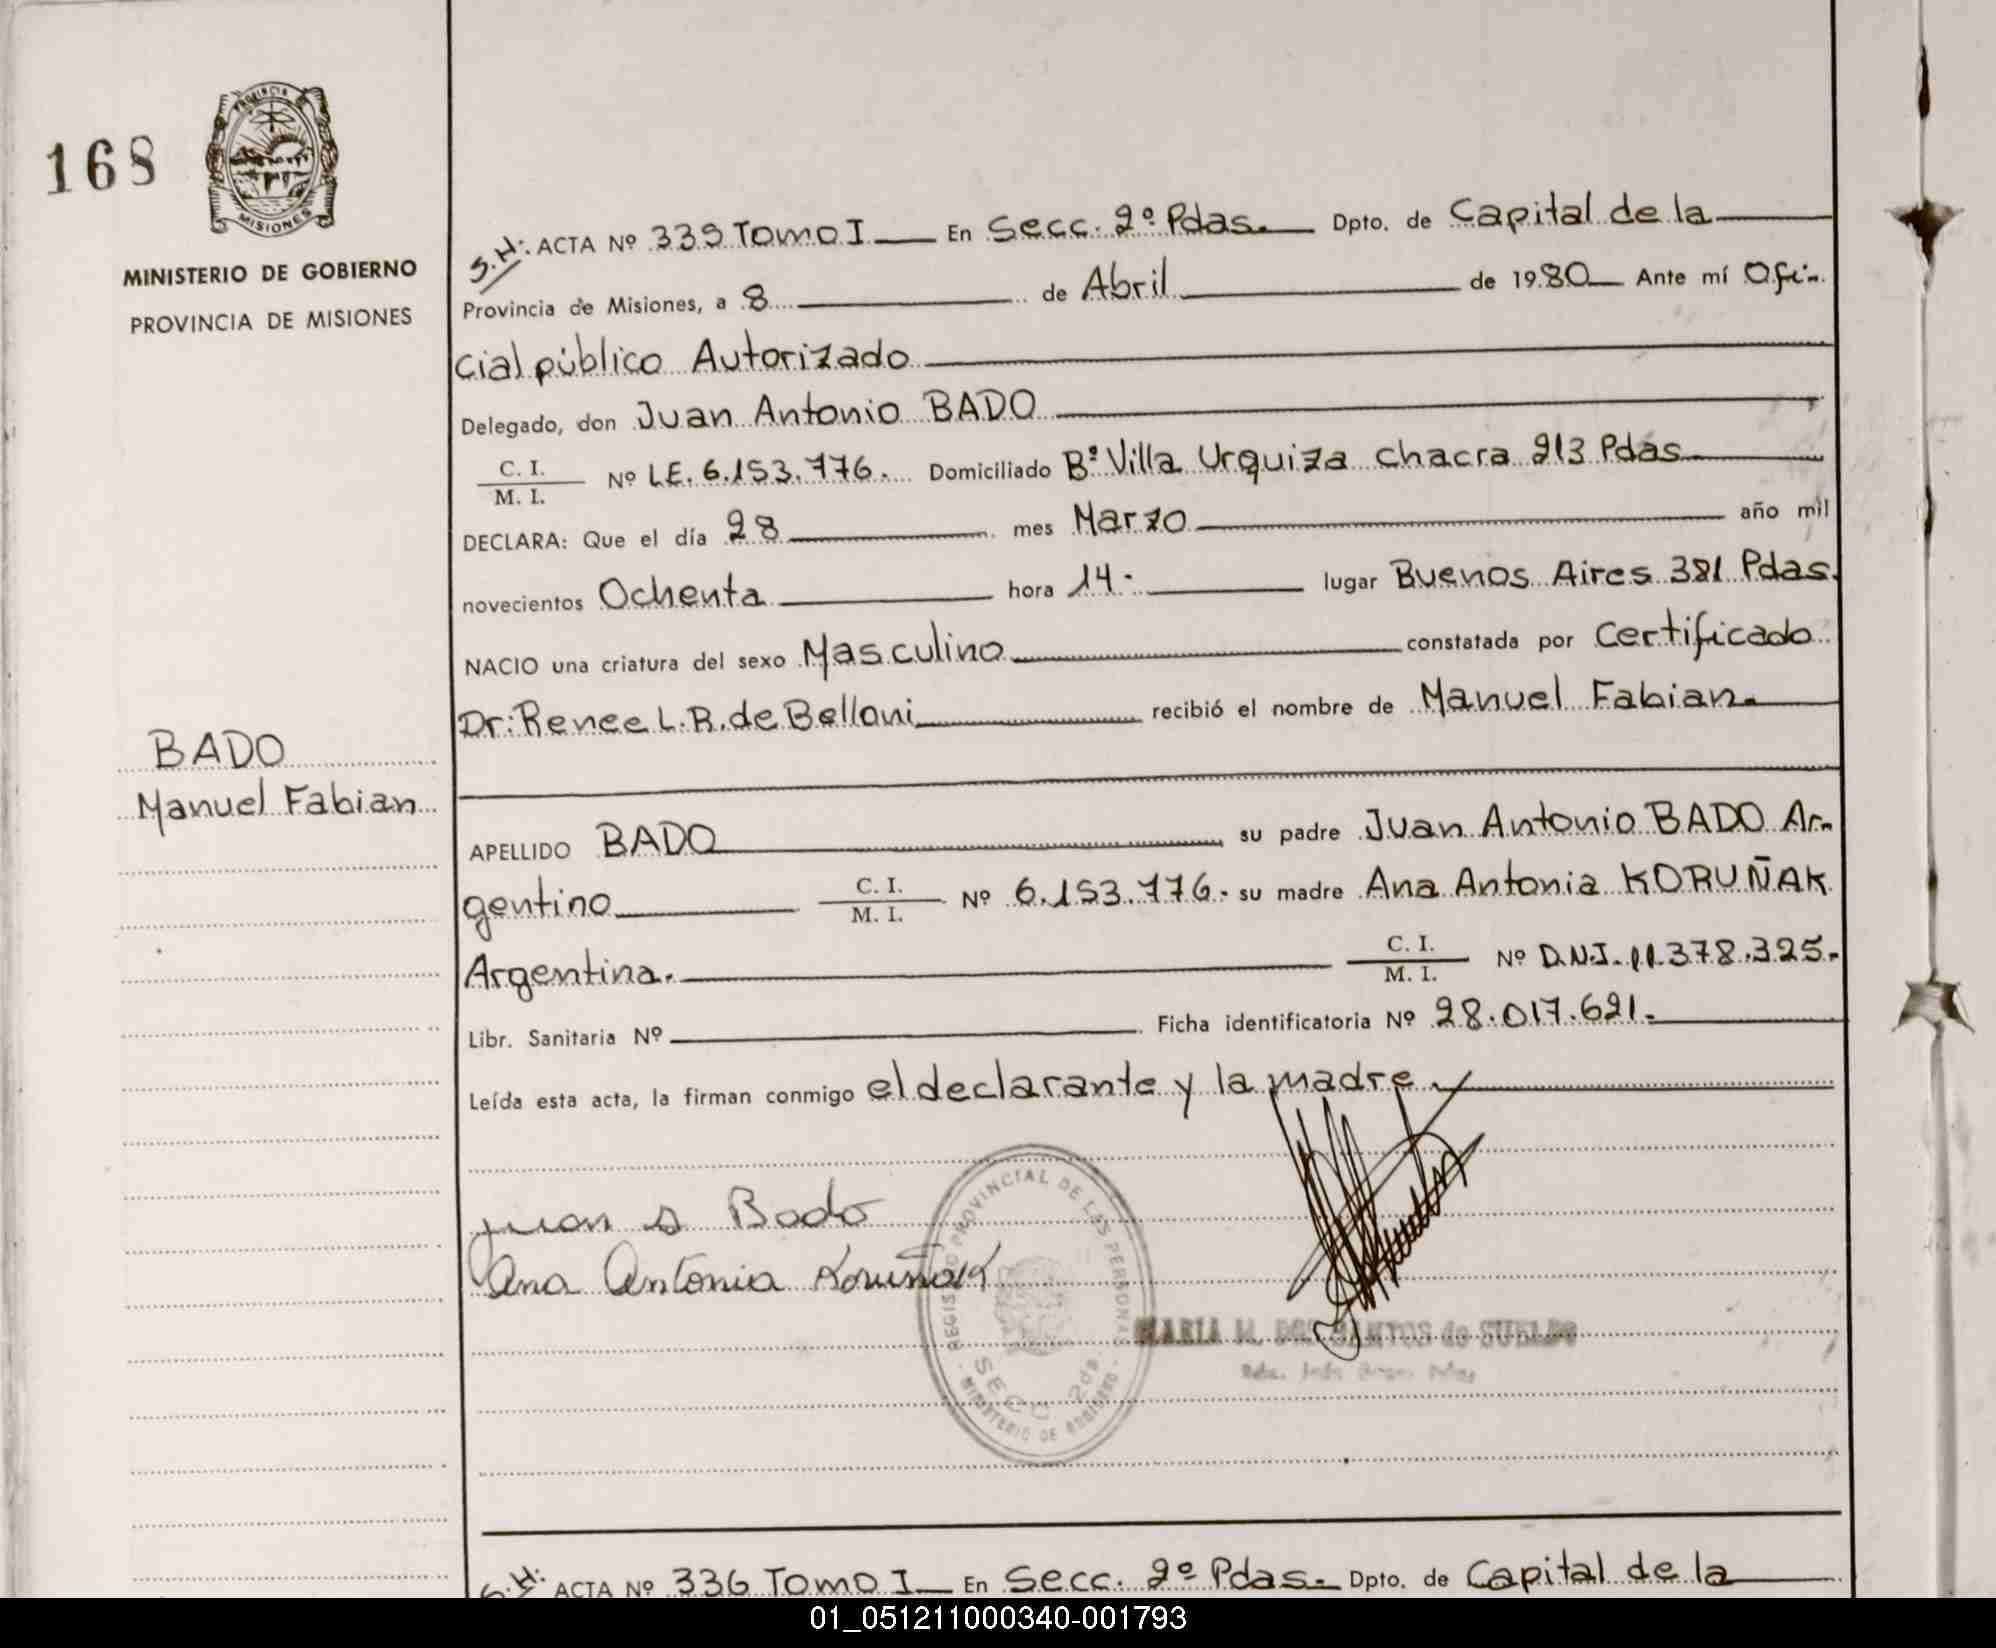 168
PROVINCIA DE
MISIONES
MINISTERIO DE GOBIERNO
PROVINCIA DE MISIONES
S.H: ACTA Nº 335 Tomo I En Secc. 2º Pdas. Dpto. de Capital de la
Provincia de Misiones, a 8 de Abril de 1980 Ante mí Ofi-
cial público Autorizado
Delegado, don Juan Antonio BADO
C. I.
M. I. Nº LE. 6.153.776. Domiciliado Bº Villa Urquiza chacra 213 Pdas
DECLARA: Que el día 28 mes Marzo año mil
novecientos Ochenta hora 14- lugar Buenos Aires 381 Pdas.
NACIO una criatura del sexo Masculino constatada por Certificado
Dr: Renee L. R. de Belloni recibió el nombre de Manuel Fabian.
BADO
Manuel Fabian
APELLIDO BADO su padre Juan Antonio BADO Ar-
gentino C. I.
M. I. Nº 6.153.776.- su madre Ana Antonia KORUÑAK
Argentina. C. I.
M. I. Nº D.N.I. 11.378.325.-
Libr. Sanitaria Nº Ficha identificatoria Nº 28.017.621.-
Leída esta acta, la firman conmigo el declarante y la madre
Juan A Bado
Ana Antonia Koruñak
REGISTRO PROVINCIAL DE LAS PERSONAS
SECC 2da
MINISTERIO DE GOBIERNO
MARIA M. DOS SANTOS de
S.H: ACTA Nº 336 Tomo I En Secc. 2º Pdas. Dpto. de Capital de la
01_051211000340-001793